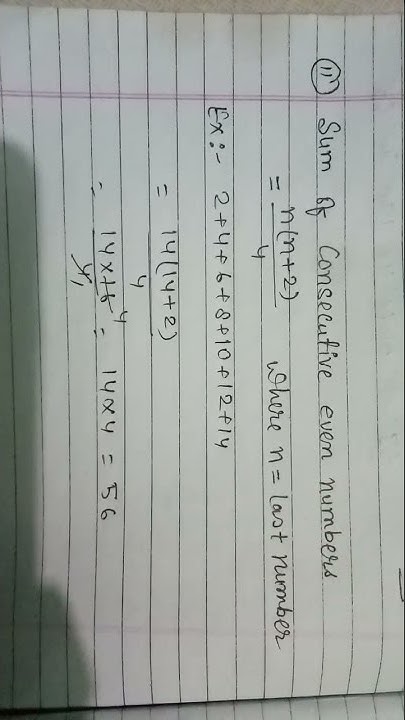 (ii) Sum of Consecutive even numbers
= n(n+2)/4 where n = last number
Ex:- 2+4+6+8+10+12+14
= 14(14+2)/4
= 14×16⁴/4₁ = 14×4 = 56